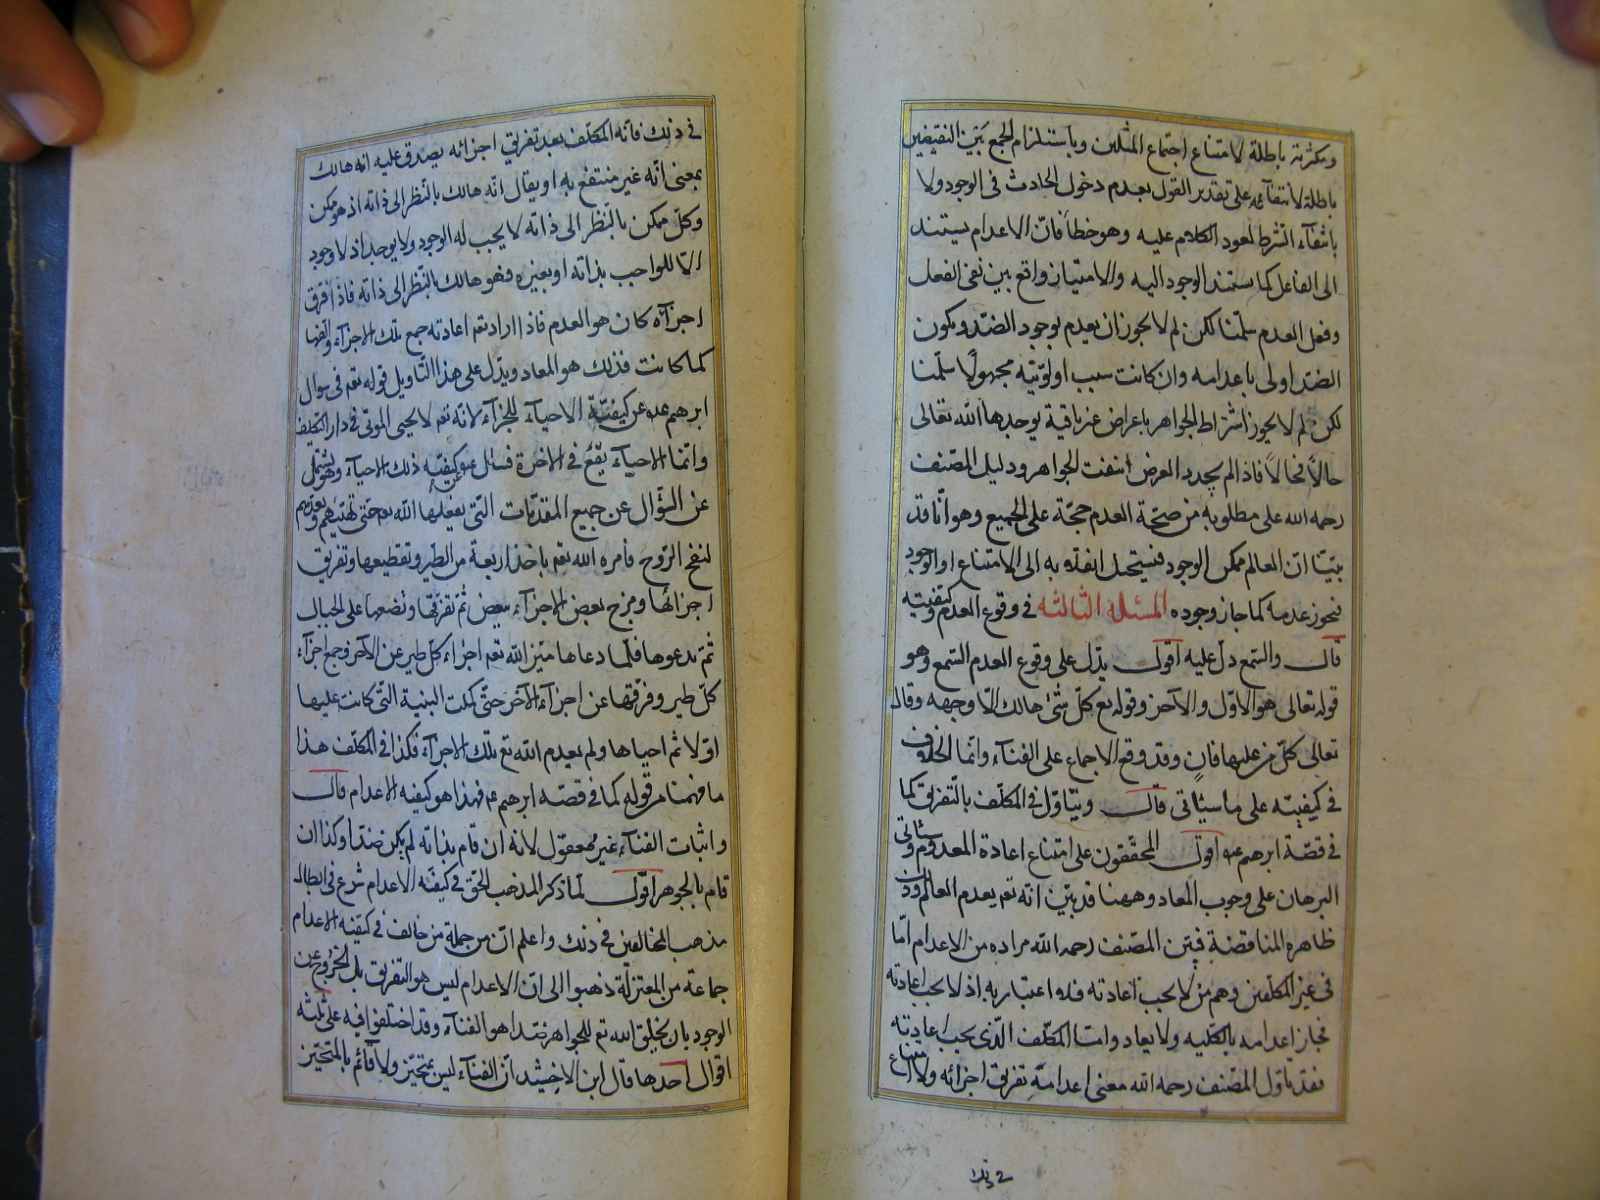 وبكثرته باطلة لامتناع اجتماع المثلين وباستلزام الجمع بين النقيضين
باطلة لانتفائه على تقدير القول بعدم دخول الحادث فى الوجود ولا
بانتفاء الشرط لعود الكلام عليه وهو خطأ فانّ الاعدام يستند
الى الفاعل كما يستند الوجود اليه والامتياز واقع بين نفى الفعل
وفعل العدم سلّمنا لكن لم لا يجوز ان يعدم بوجود الضدّ ويكون
الضدّ اولى باعدامه وان كانت سبب اولويّته مجهولا سلّمنا
لكن لم لا يجوز اشتراط الجواهر باعراض غير باقية يوجدها الله تعالى
حالاً فحالاً فاذا لم يجدد العرض انتفت الجواهر ودليل المصنف
رحمه الله على مطلوبه من صحّة العدم حجّة على الجميع وهو انّا قد
بيّنّا انّ العالم ممكن الوجود فيستحيل انقلابه الى الامتناع او الوجوب
فيجوز عدمه كما جاز وجوده المسئله الثالثه فى وقوع العدم وكيفيته
قال والسّمع دلّ عليه اقول يدّل على وقوع العدم السّمع وهو
قوله تعالى هو الاوّل والآخر وقوله تع كلّ شئ هالك الّا وجهه وقال
تعالى كلّ من عليها فانٍ وقد وقع الاجماع على الفناء وانّما الخلاف
فى كيفيّته على ما سيأتى قال ويتأوّل فى المكلّف بالتفريق كما
فى قصّة ابرهيم عم اقول المحقّقون على امتناع اعادة المعدوم وسيأتى
البرهان على وجوب المعاد وههنا قد بيّن انّه تعم يعدم العالم وذلك
ظاهره المناقضة فبيّن المصّنف رحمه الله مراده من الاعدام امّا
فى غير المكلّفين وهم من لا يجب اعادته فلا اعتبار به اذ لا يجب اعادته
فجاز اعدامه بالكلّيه ولا يعاد وامّا المكلّف الّذى يجب اعادته
فقد تأوّل المصّنف رحمه الله معنى اعدامه بتفريق اجزائه ولا امتناع
فى ذلك
فى ذلك فانّه المكلّف بعد تفريق اجزائه يصدق عليه انه هالك
بمعنى انّه غير منتفع به او يقال انّه هالك بالنّظر الى ذاته اذ هو ممكن
وكلّ ممكن بالنّظر الى ذاته لا يجب له الوجود ولا يوجد اذ لا وجود
الّا للواجب بذاته او بغيره فهو هالك بالنّظر الى ذاته فاذا افرق
اجزآه كان هو العدم فاذا اراد تعم اعادته جمع تلك الاجزآء والّفها
كما كانت فذلك هو المعاد ويدّل على هذا التّاويل قوله تعم فى سوال
ابرهيم عم عن كيفيّة الاحيآء للجزآء لانه تعم لا يحيى الموتى فى دار التكليف
وانّما الاحيآء يقع فى الاخرة فسأل عن كيفيّه ذلك الاحيآء وهو يشتمل
عن السّؤال عن جميع المقدّمات التّى يفعلها الله تع حتى
لنفخ الرّوح فامره الله تعم باخذ اربعة من الطير وتقطيعها وتفريق
اجزائها ومزج بعض الاجزآء ببعض ثمّ تفرقها وتضعها على الجبال
ثمّ يدعوها فلمّا دعاها ميّز الله تعم اجزاء كلّ طير عن الآخر وجمع اجزآء
كلّ طير وفرقها عن اجزآء الآخر حتّى كملت البنية التّى كانت عليها
اوّلا ثم احياها ولم يعدم الله تع تلك الاجزآء فكذا فى المكلّف هذا
ما فهمنا من قوله كما فى قصّه ابرهيم عم فهذا هو كيفيّه الاعدام قال
واثبات الفنآء غير معقول لانه ان قام بذاته لم يكن ضدا وكذا ان
قام بالجوهر اقول لمّا ذكر المذهب الحقّ فى كيفيّه الاعدام شرع فى ابطال
مذهب المخالفين فى ذلك واعلم انّ من جملة من خالف فى كيفيّه الاعدام
جماعة من المعتزلة ذهبوا الى ان الاعدام ليس هو التفريق بل الخروج عن
الوجود بان يخلق الله تع للجواهر ضدا هو الفنآء وقد اختلفوا فيه على ثلثه
اقوال احدها قال ابن الاخيشد انّ الفنآء ليس بمتحيّز ولا قائم بالمتحيّز